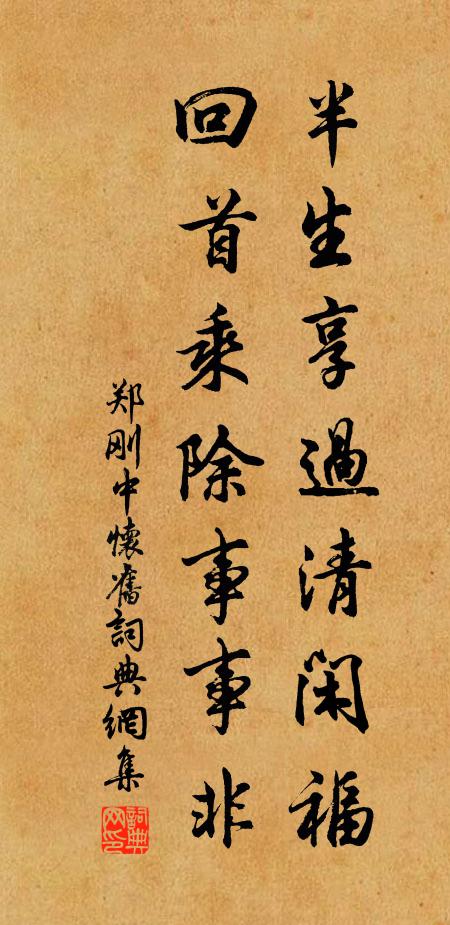 半生享過清閑福
回首乘除事事非
郑刚中懷舊詞典網集
詞典網印